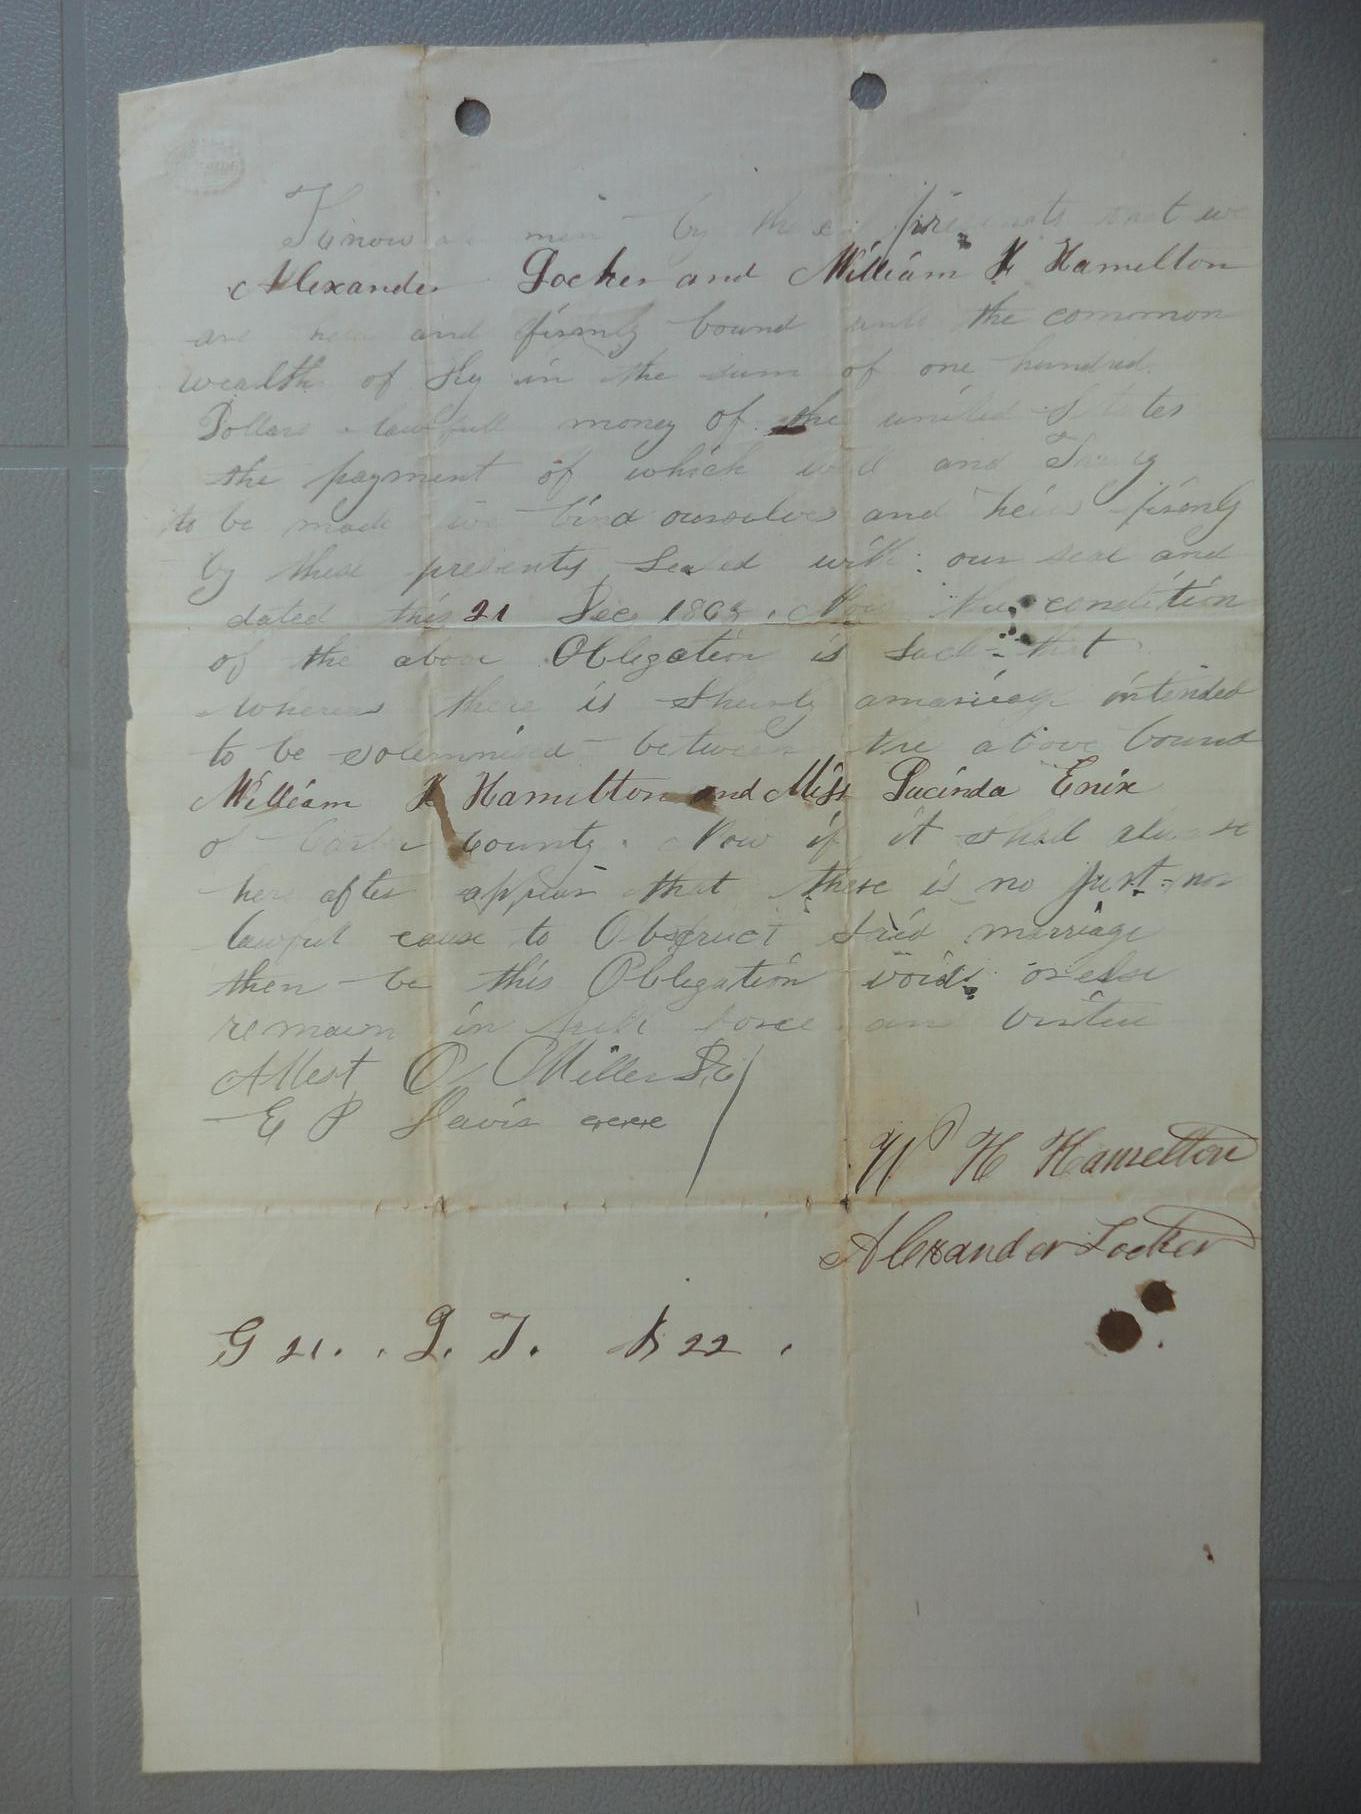 Know men by these presents that we
Alexander Locker and William H Hamelton
are and firmly bound unto the common
wealth of Ky in the sum of one hundred
Dollars lawfull money of the united States
the payment of which well and Truly
to be made we bind ourselves and heirs firmly
by these presents Sealed with our seal and
dated this 21 Dec 186 . Now the condition
of the above Obligation is Such that
whereas there is Shortly amarriage intended
to be solemnised between the above bound
William H Hamilton and Miss Lucinda Enix
of Carter County. Now if it shal
here after appear that there is no just nor
lawfull cause to Obstruct Said marriage
then be this Obligation void or else
remain in full force an virtue
Attest O Miller
E P Davis
W H Hamelton
Alexander Locker
G 21. . L. T. B 22 .